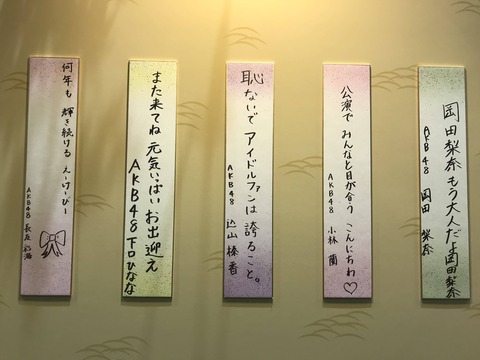 岡田梨奈もう大人だよ岡田梨奈
AKB48 岡田 梨奈
公演で みんなと目が合う こんにちわ♡
AKB48 小林 蘭
恥ないで アイドルファンは 誇ること。
AKB48 込山榛香
また来てね 元気いっぱい お出迎え
AKB48 下口ひなな
何年も 輝き続ける えーけーびー
AKB48 長友彩海